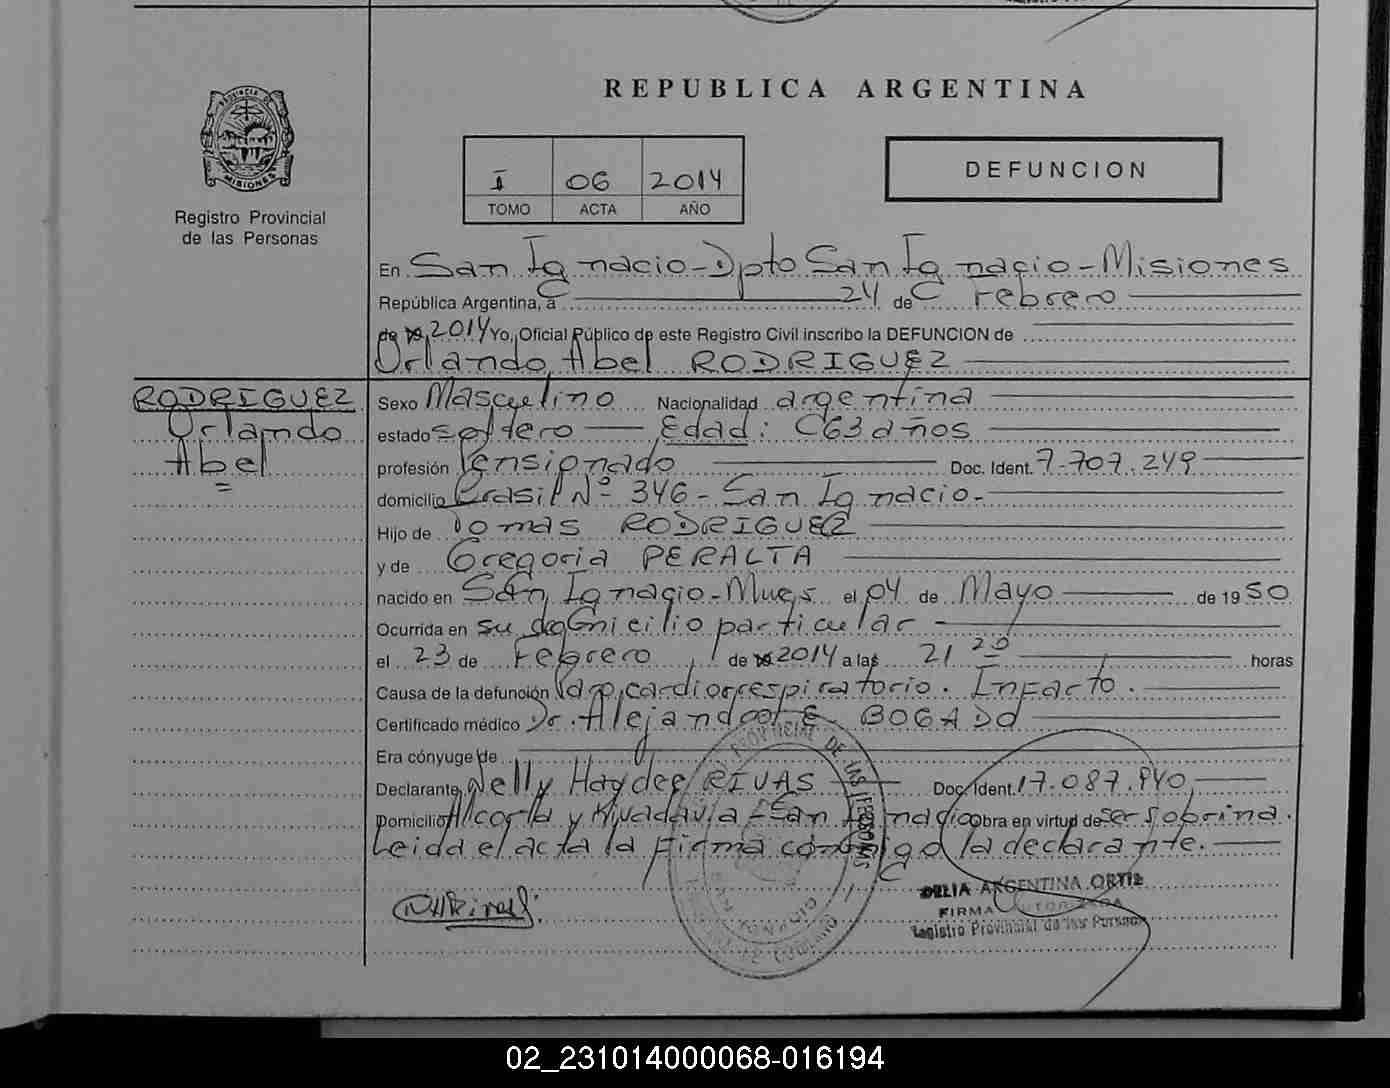 REPUBLICA ARGENTINA
PROVINCIA DE
MISIONES
Registro Provincial
de las Personas
I 06 2014
TOMO ACTA AÑO
DEFUNCION
En San Ignacio-Dpto San Ignacio-Misiones
República Argentina, a 24 de Febrero
de 19 2014 Yo, Oficial Público de este Registro Civil inscribo la DEFUNCION de
Orlando Abel RODRIGUEZ
RODRIGUEZ
Orlando
Abel
Sexo Masculino Nacionalidad argentina
estado soltero Edad: 63 años
profesión Pensionado Doc. Ident. 7.707.249
domicilio Brasil Nº 346 - San Ignacio -
Hijo de Tomas RODRIGUEZ
y de Gregoria PERALTA
nacido en San Ignacio - Mnes el 04 de Mayo de 19 50
Ocurrida en su domicilio particular
el 23 de Febrero de 19 2014 a las 21 20 horas
Causa de la defunción Paro cardiorrespiratorio. Infarto.
Certificado médico Dr. Alejandro E BOGADO
Era cónyuge de
Declarante Nelly Haydee RIVAS Doc. Ident. 17.087.940
Domicilio Alcorta y Rivadavia - San Ignacio Obra en virtud de ser sobrina.
Leida el acta la firma conmigo la declarante.
PROVINCIAL DE LAS PERSONAS
DELIA ARGENTINA ORTIZ
FIRMA AUTORIZADA
Registro Provincial de las Personas
02_231014000068-016194